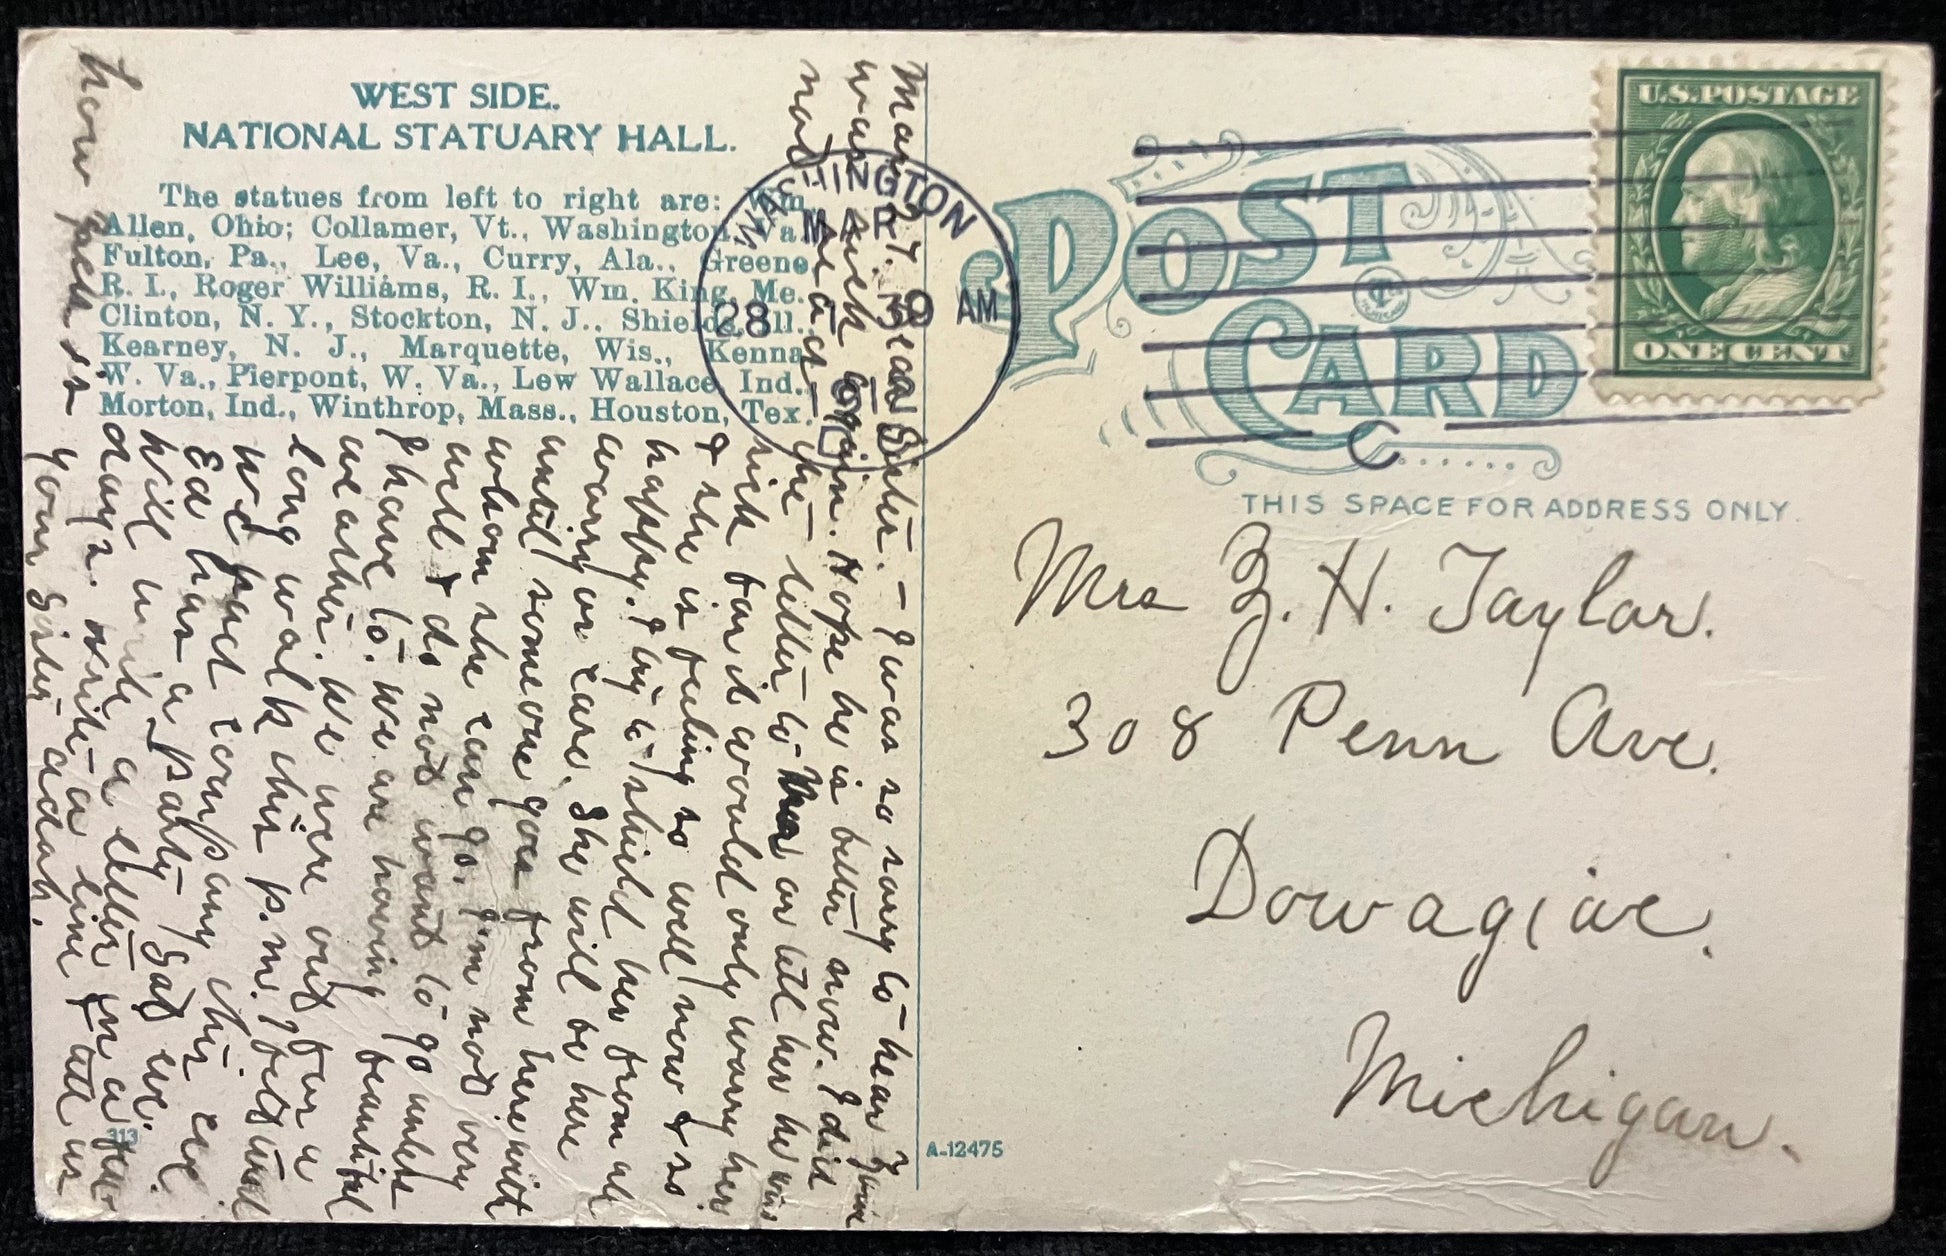 WEST SIDE.
NATIONAL STATUARY HALL.
The statues from left to right are: Wm.
Allen, Ohio; Collamer, Vt., Washington, Va.
Fulton, Pa., Lee, Va., Curry, Ala., Greene,
R. I., Roger Williams, R. I., Wm. King, Me.
Clinton, N. Y., Stockton, N. J., Shields, Ill.,
Kearney, N. J., Marquette, Wis., Kenna,
W. Va., Pierpont, W. Va., Lew Wallace, Ind.,
Morton, Ind., Winthrop, Mass., Houston, Tex.
WASHINGTON
MAR
28
30 AM
D.C.
U.S. POSTAGE
ONE CENT
POST
CARD
THIS SPACE FOR ADDRESS ONLY.
Mrs Z. H. Taylor.
308 Penn Ave.
Dowagiac.
Michigan.
A-12475
313
Mar 27. Dear Sister. – I was so sorry to hear
was sick again. Hope he is better now. I did
not read the letter to Ma or tell her he was
sick for it would only worry her
& she is feeling so well now & so
happy. I try to shield her from all
worry or care. She will be here
until some one goes from here with
whom she can go. I'm not very
well & do not want to go unless
I have to. We are having beautiful
weather. We were out for a
long walk this p.m. I felt tired
We had company this eve.
Ed has a party Sat eve.
Will write a letter in a few
days. Write a line & tell us
how is
your sister Adah.